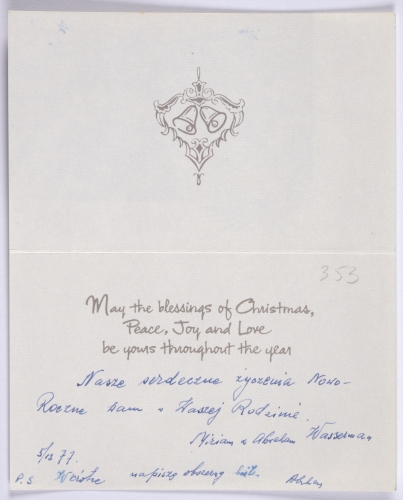 353
May the blessings of Christmas,
Peace, Joy and Love
be yours throughout the year
Nasze serdeczne życzenia Nowo-
Roczne Wam i Waszej Rodzinie.
Miriam i Abraham Wasserman
5/12 77.
P.S Wkrótce napiszę obszerny list.